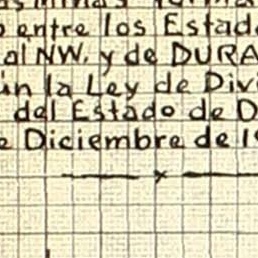 entre los Estad
al NW. y de DURA
la Ley de Divi
del Estado de D
Diciembre de 19